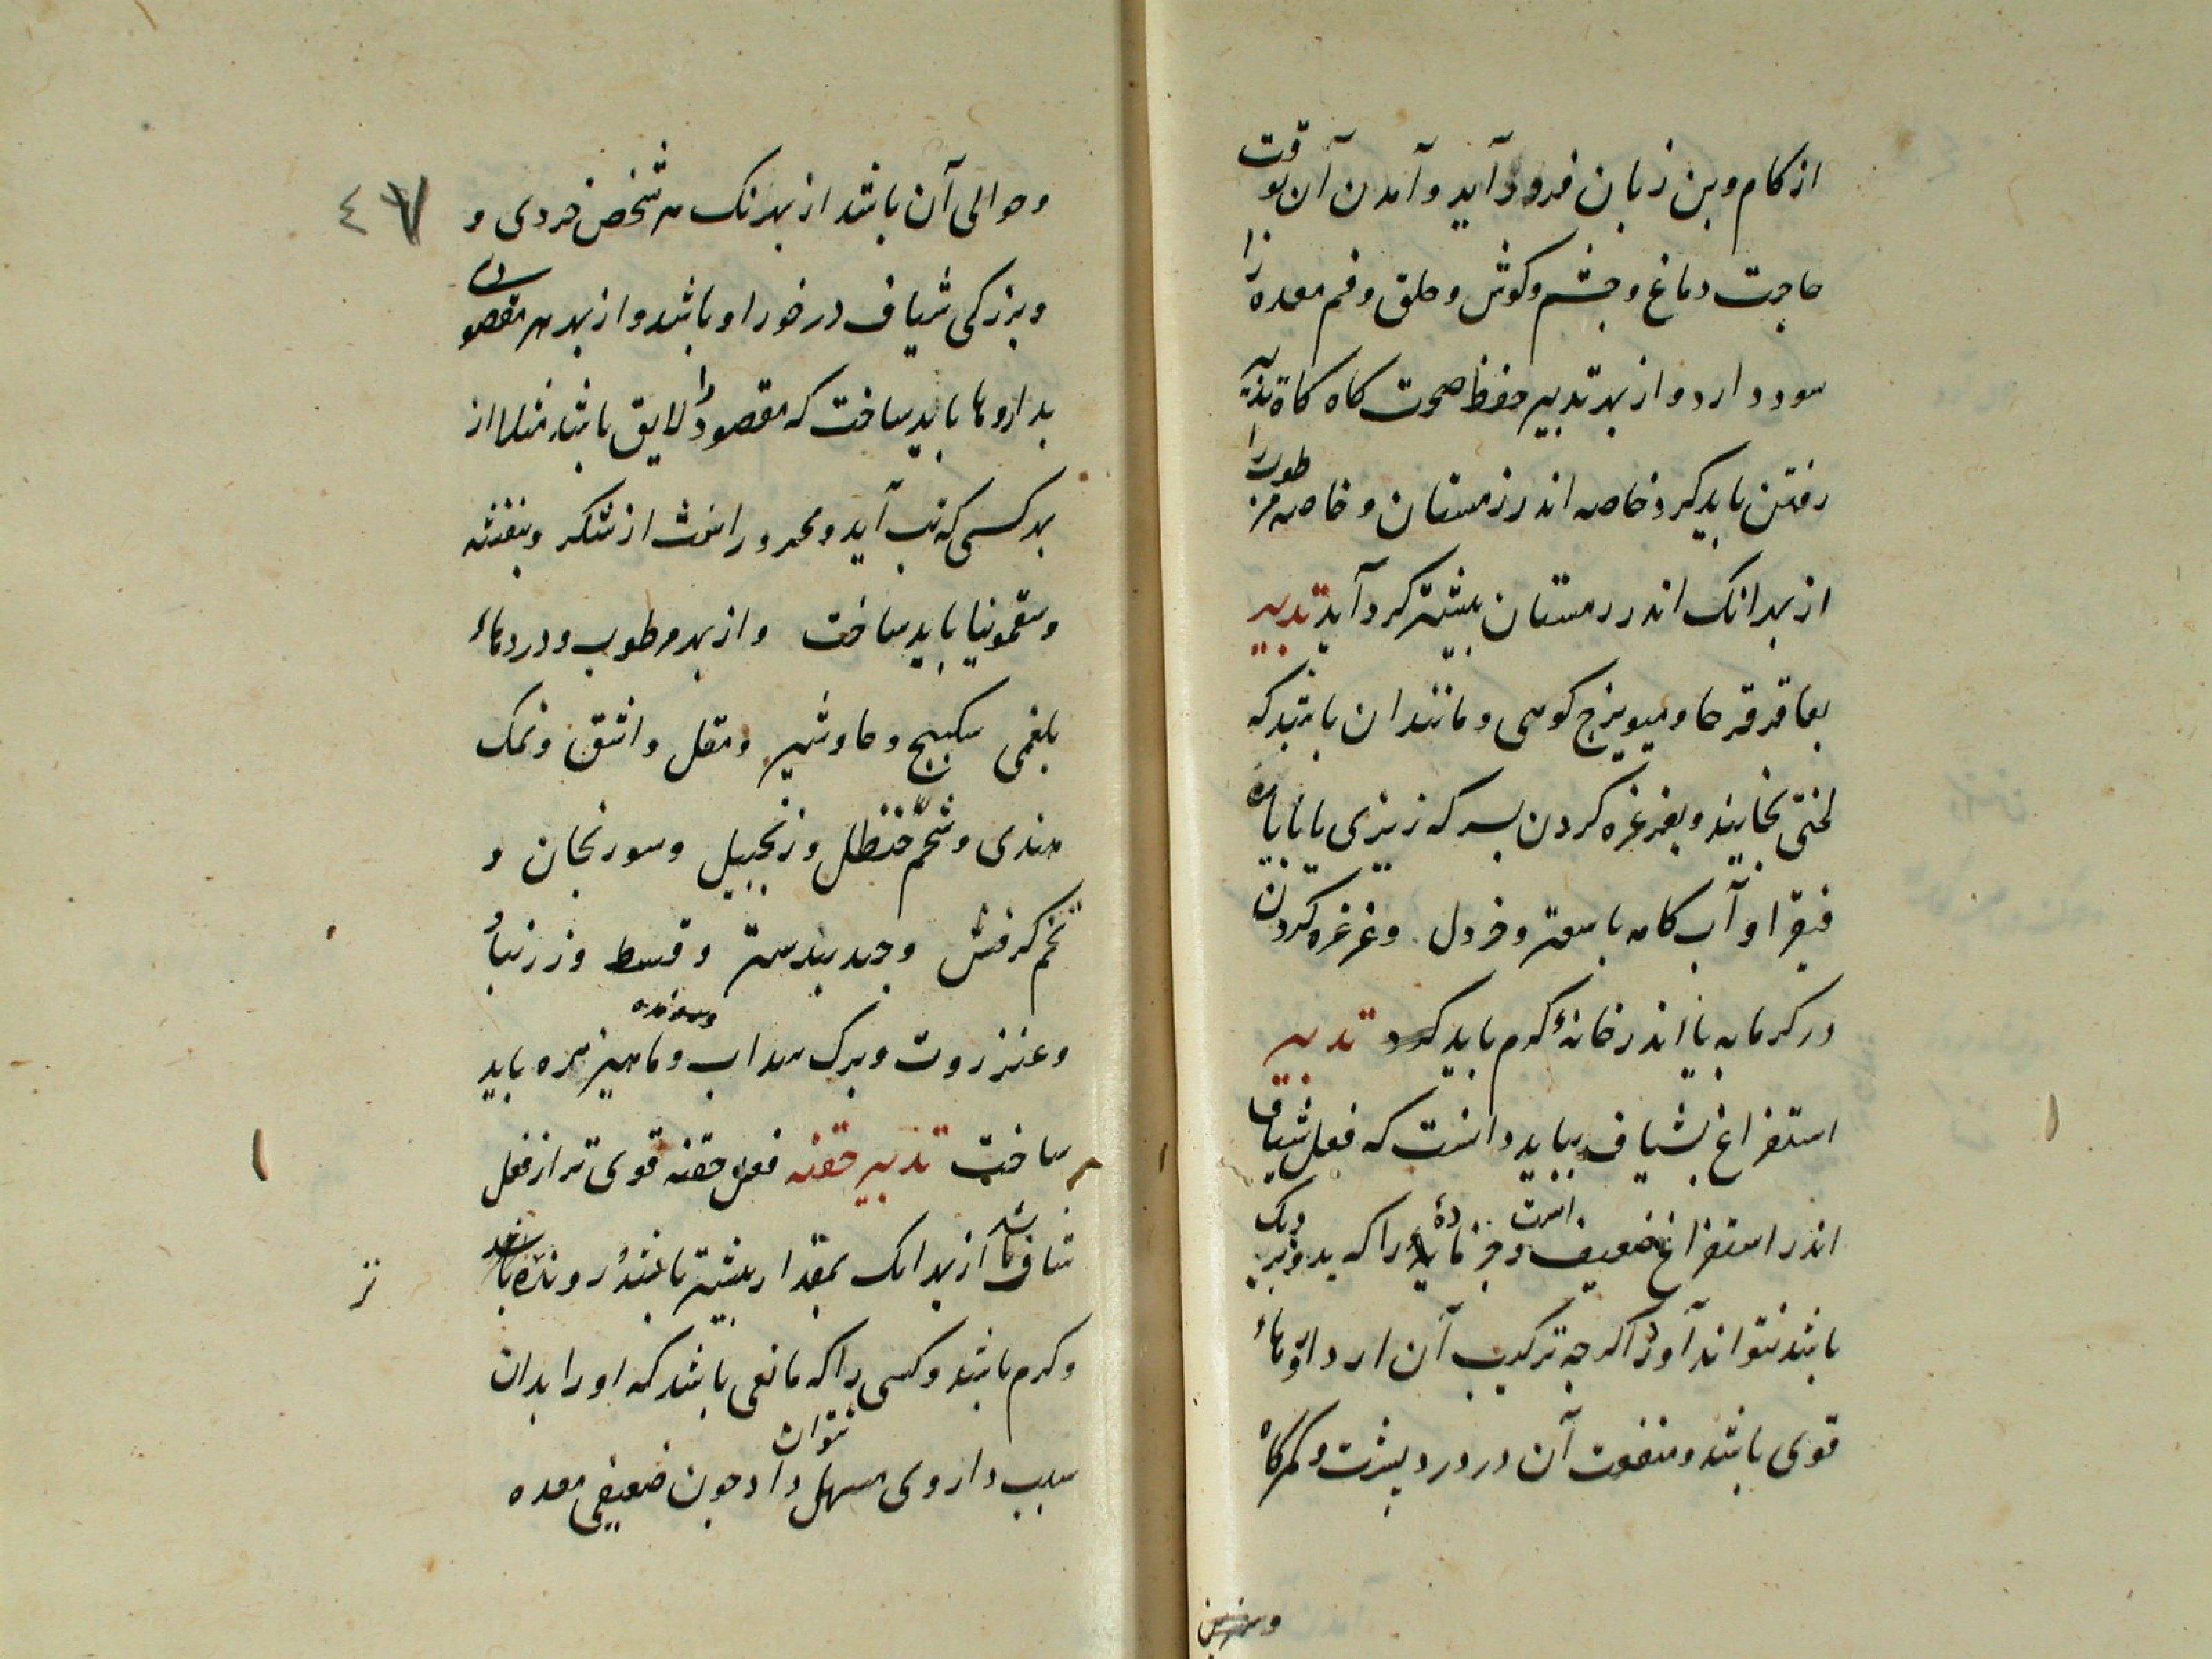 از کام و بن زبان فرود آید و آمدن آن بوقت
حاجت دماغ و چشم و کوش و حلق و فم معده را
سود دارد و از بهر تدبیر حفظ صحت کاه کاه
رفتن باید کرد خاصه اندر زمستان و خاصه مرطوب را
از بهر انک اندر رمستان بیشتر کرد آید تدبیر
بعاقرقرحا و میویزج کوهی و مانند ان باشد که
لختی بخایند و بغرغره کردن بسرکه زیزی با یاباره
فیقرا و آب کامه با سعتر و خردل و غرغره کردن
در کرمابه یا اندر خانهٔ کرم باید کرد تدبیر
استفراغ بشیاف بباید دانست که فعل شیاف
اندر استفراغ ضعیف است و جز مادهٔ را که بدو نزدیک
باشد نتواند آورد اکر جه ترکیب آن از داروهاء
قوی باشد و منفعت آن در درد پشت و کمرکاه
و حوالی آن باشد از بهر انک هر شخص خردی و
و بزرکی شیاف در خور او باشد و از بهر هر مقصودی
بداروها باید ساخت که مقصود را لایق باشد مثلا از
بهر کسی که تب آید و محرور از شکر و بنفشه
و سقمونیا باید ساخت و از بهر مرطوب و دردهاء
بلغمی سکبینج و جاوشیر و مقل و اشق و نمک
هندی و شحم حنظل و زنجبیل و سورنجان و
تخم کرفش و جندبیدستر و قسط و زرنباد
و عنزروت و برک سداب و ماهیزهره باید
ساخت تدبیر حقنه فعل حقنه قوی تر از فعل
شاف باشد از بهر انک بمقدار بیشتر باشد و رونده باشد
و کرم باشد و کسی را که مانعی باشد که او را بدان
سبب داروی مسهل نتوان داد جون ضعیفی معده